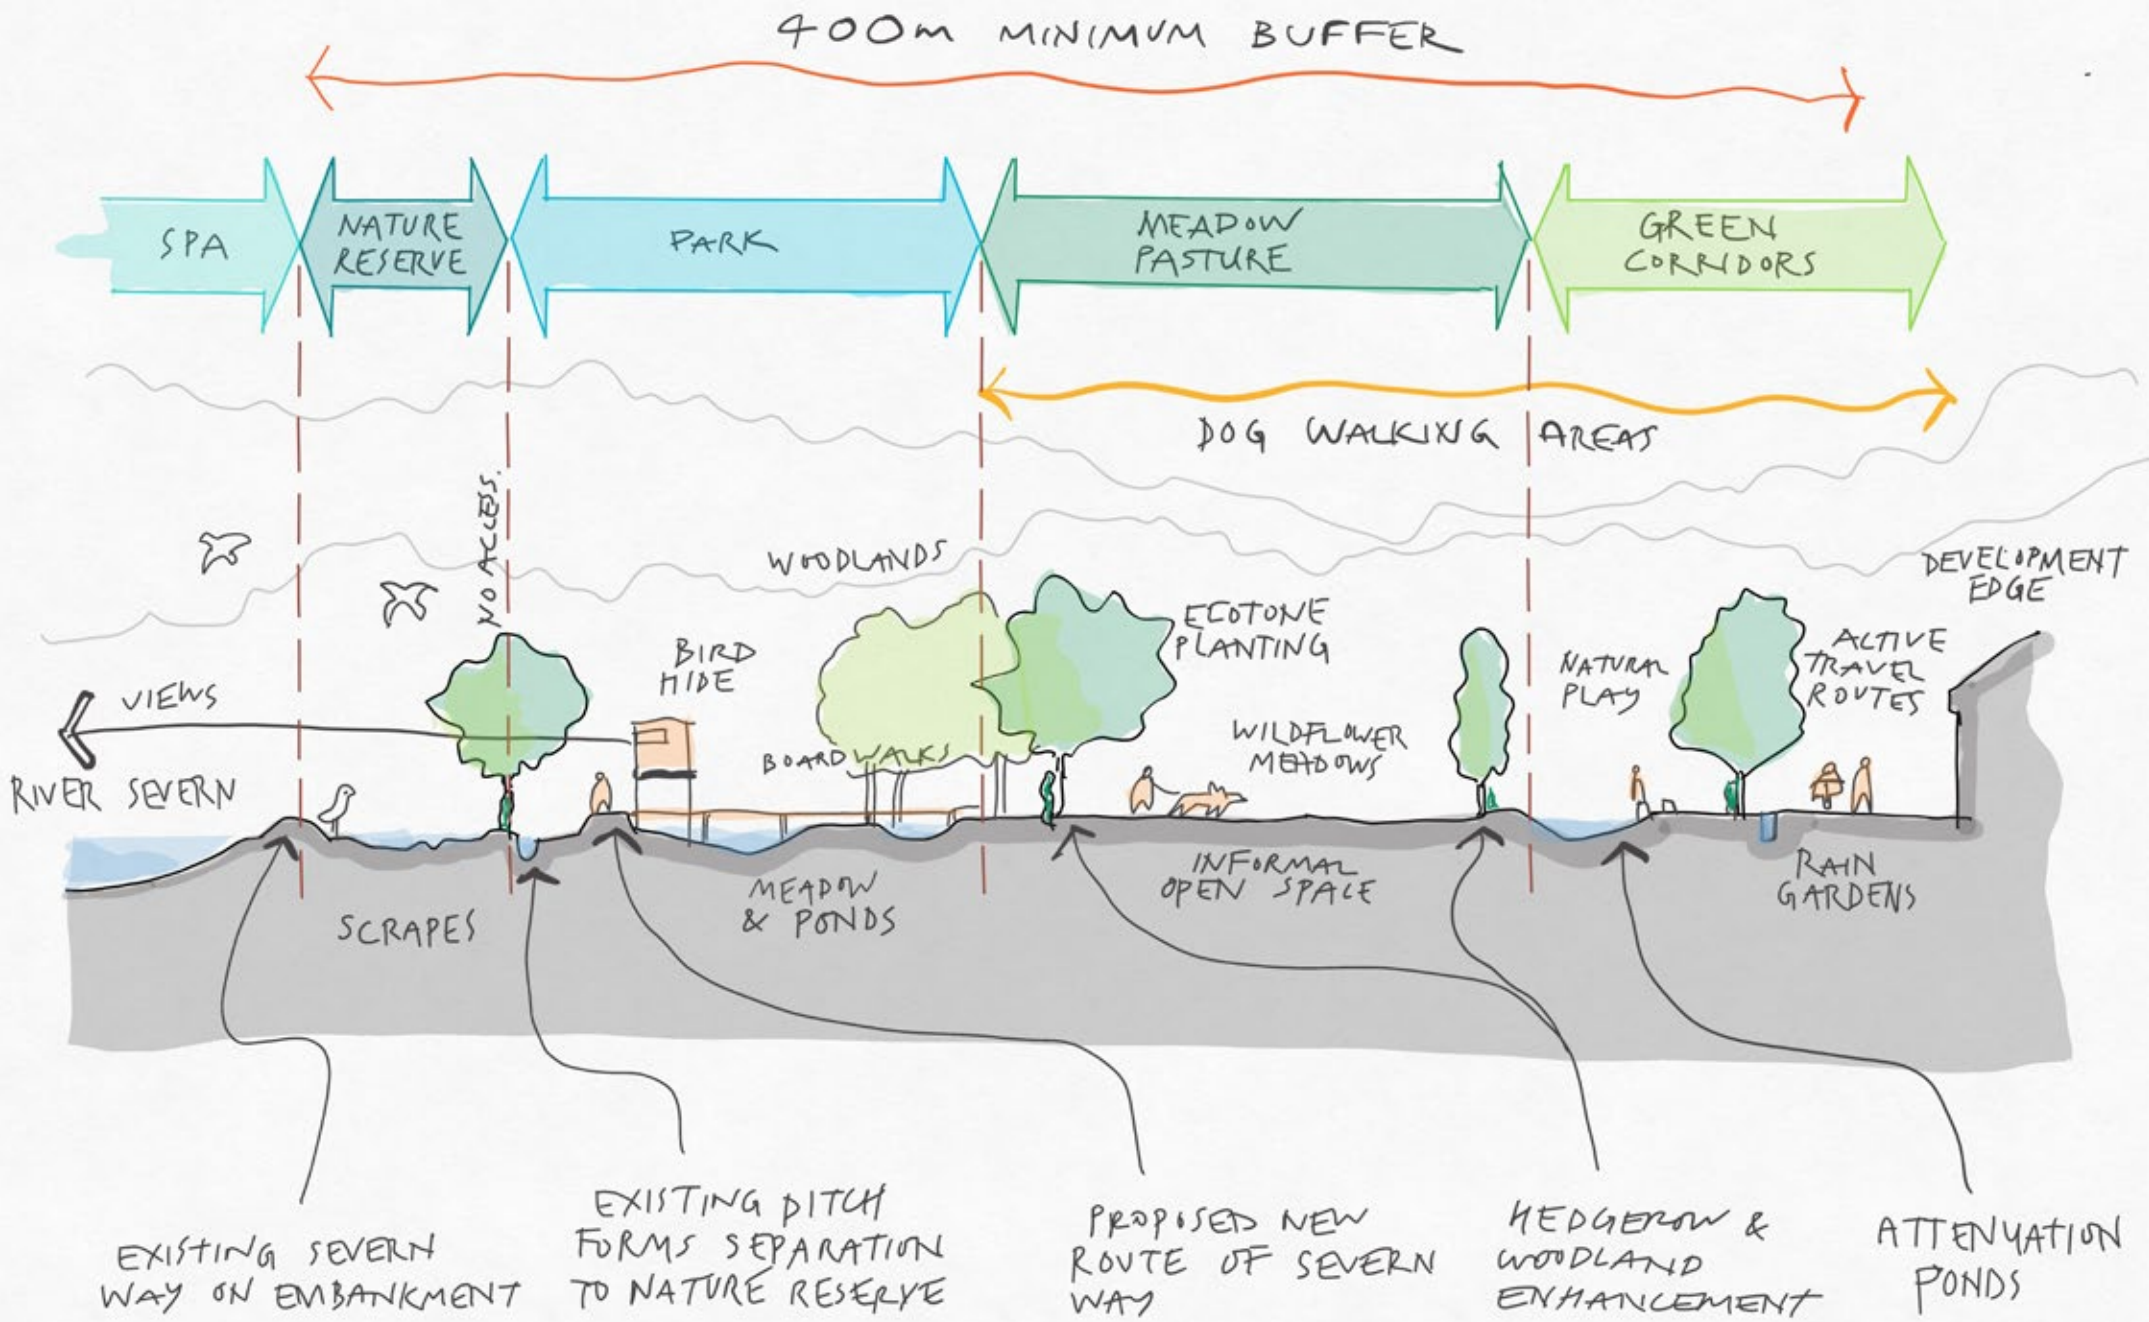 400m MINIMUM BUFFER
SPA
NATURE
RESERVE
PARK
MEADOW
PASTURE
GREEN
CORRIDORS
DOG WALKING AREAS
NO ACCESS.
WOODLANDS
DEVELOPMENT
EDGE
ECOTONE
PLANTING
BIRD
HIDE
NATURAL
PLAY
ACTIVE
TRAVEL
ROUTES
VIEWS
WILDFLOWER
MEADOWS
BOARDWALKS
RIVER SEVERN
SCRAPES
MEADOW
& PONDS
INFORMAL
OPEN SPACE
RAIN
GARDENS
EXISTING SEVERN
WAY ON EMBANKMENT
EXISTING DITCH
FORMS SEPARATION
TO NATURE RESERVE
PROPOSED NEW
ROUTE OF SEVERN
WAY
HEDGEROW &
WOODLAND
ENHANCEMENT
ATTENUATION
PONDS